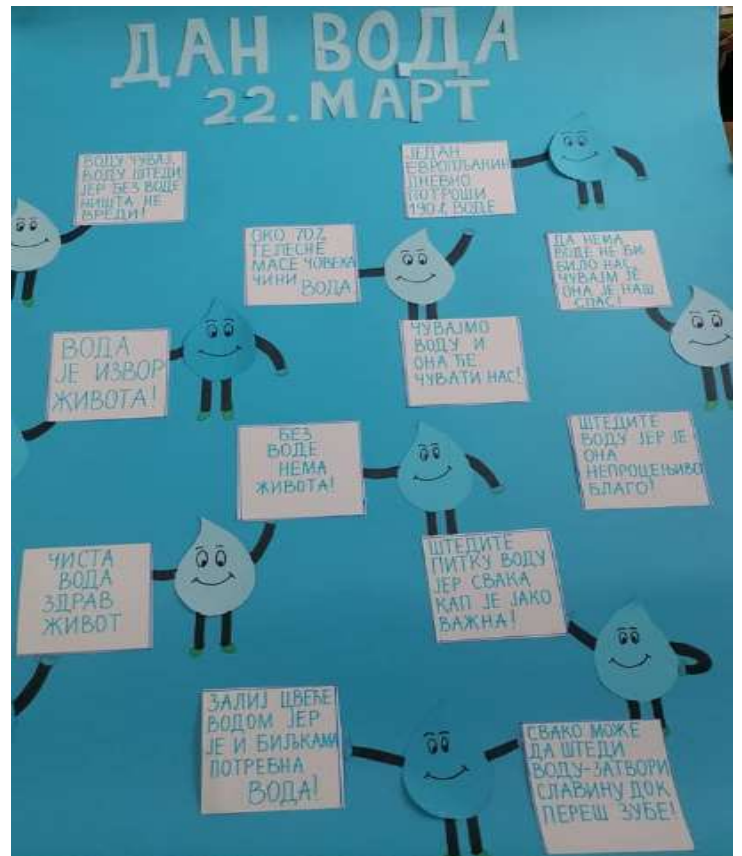 ДАН ВОДА
22. МАРТ
ВОДУ ЧУВАЈ,
ВОДУ ШТЕДИ
ЈЕР БЕЗ ВОДЕ
НИШТА НЕ
ВРЕДИ!
ЈЕДАН
ЕВРОПЉАНИН
ДНЕВНО
ПОТРОШИ
190 l ВОДЕ
ОКО 70%
ТЕЛЕСНЕ
МАСЕ ЧОВЕКА
ЧИНИ
ВОДА
ДА НЕМА
ВОДЕ НЕ БИ
БИЛО НАС,
ЧУВАЈМ ЈЕ
ОНА ЈЕ НАШ
СПАС!
ВОДА
ЈЕ ИЗВОР
ЖИВОТА!
ЧУВАЈМО
ВОДУ И
ОНА ЋЕ
ЧУВАТИ НАС!
БЕЗ
ВОДЕ
НЕМА
ЖИВОТА!
ШТЕДИТЕ
ВОДУ ЈЕР ЈЕ
ОНА
НЕПРОЦЕЊИВО
БЛАГО!
ЧИСТА
ВОДА
ЗДРАВ
ЖИВОТ
ШТЕДИТЕ
ПИТКУ ВОДУ
ЈЕР СВАКА
КАП ЈЕ ЈАКО
ВАЖНА!
ЗАЛИЈ ЦВЕЋЕ
ВОДОМ ЈЕР
ЈЕ И БИЉКАМА
ПОТРЕБНА
ВОДА!
СВАКО МОЖЕ
ДА ШТЕДИ
ВОДУ-ЗАТВОРИ
СЛАВИНУ ДОК
ПЕРЕШ ЗУБЕ!